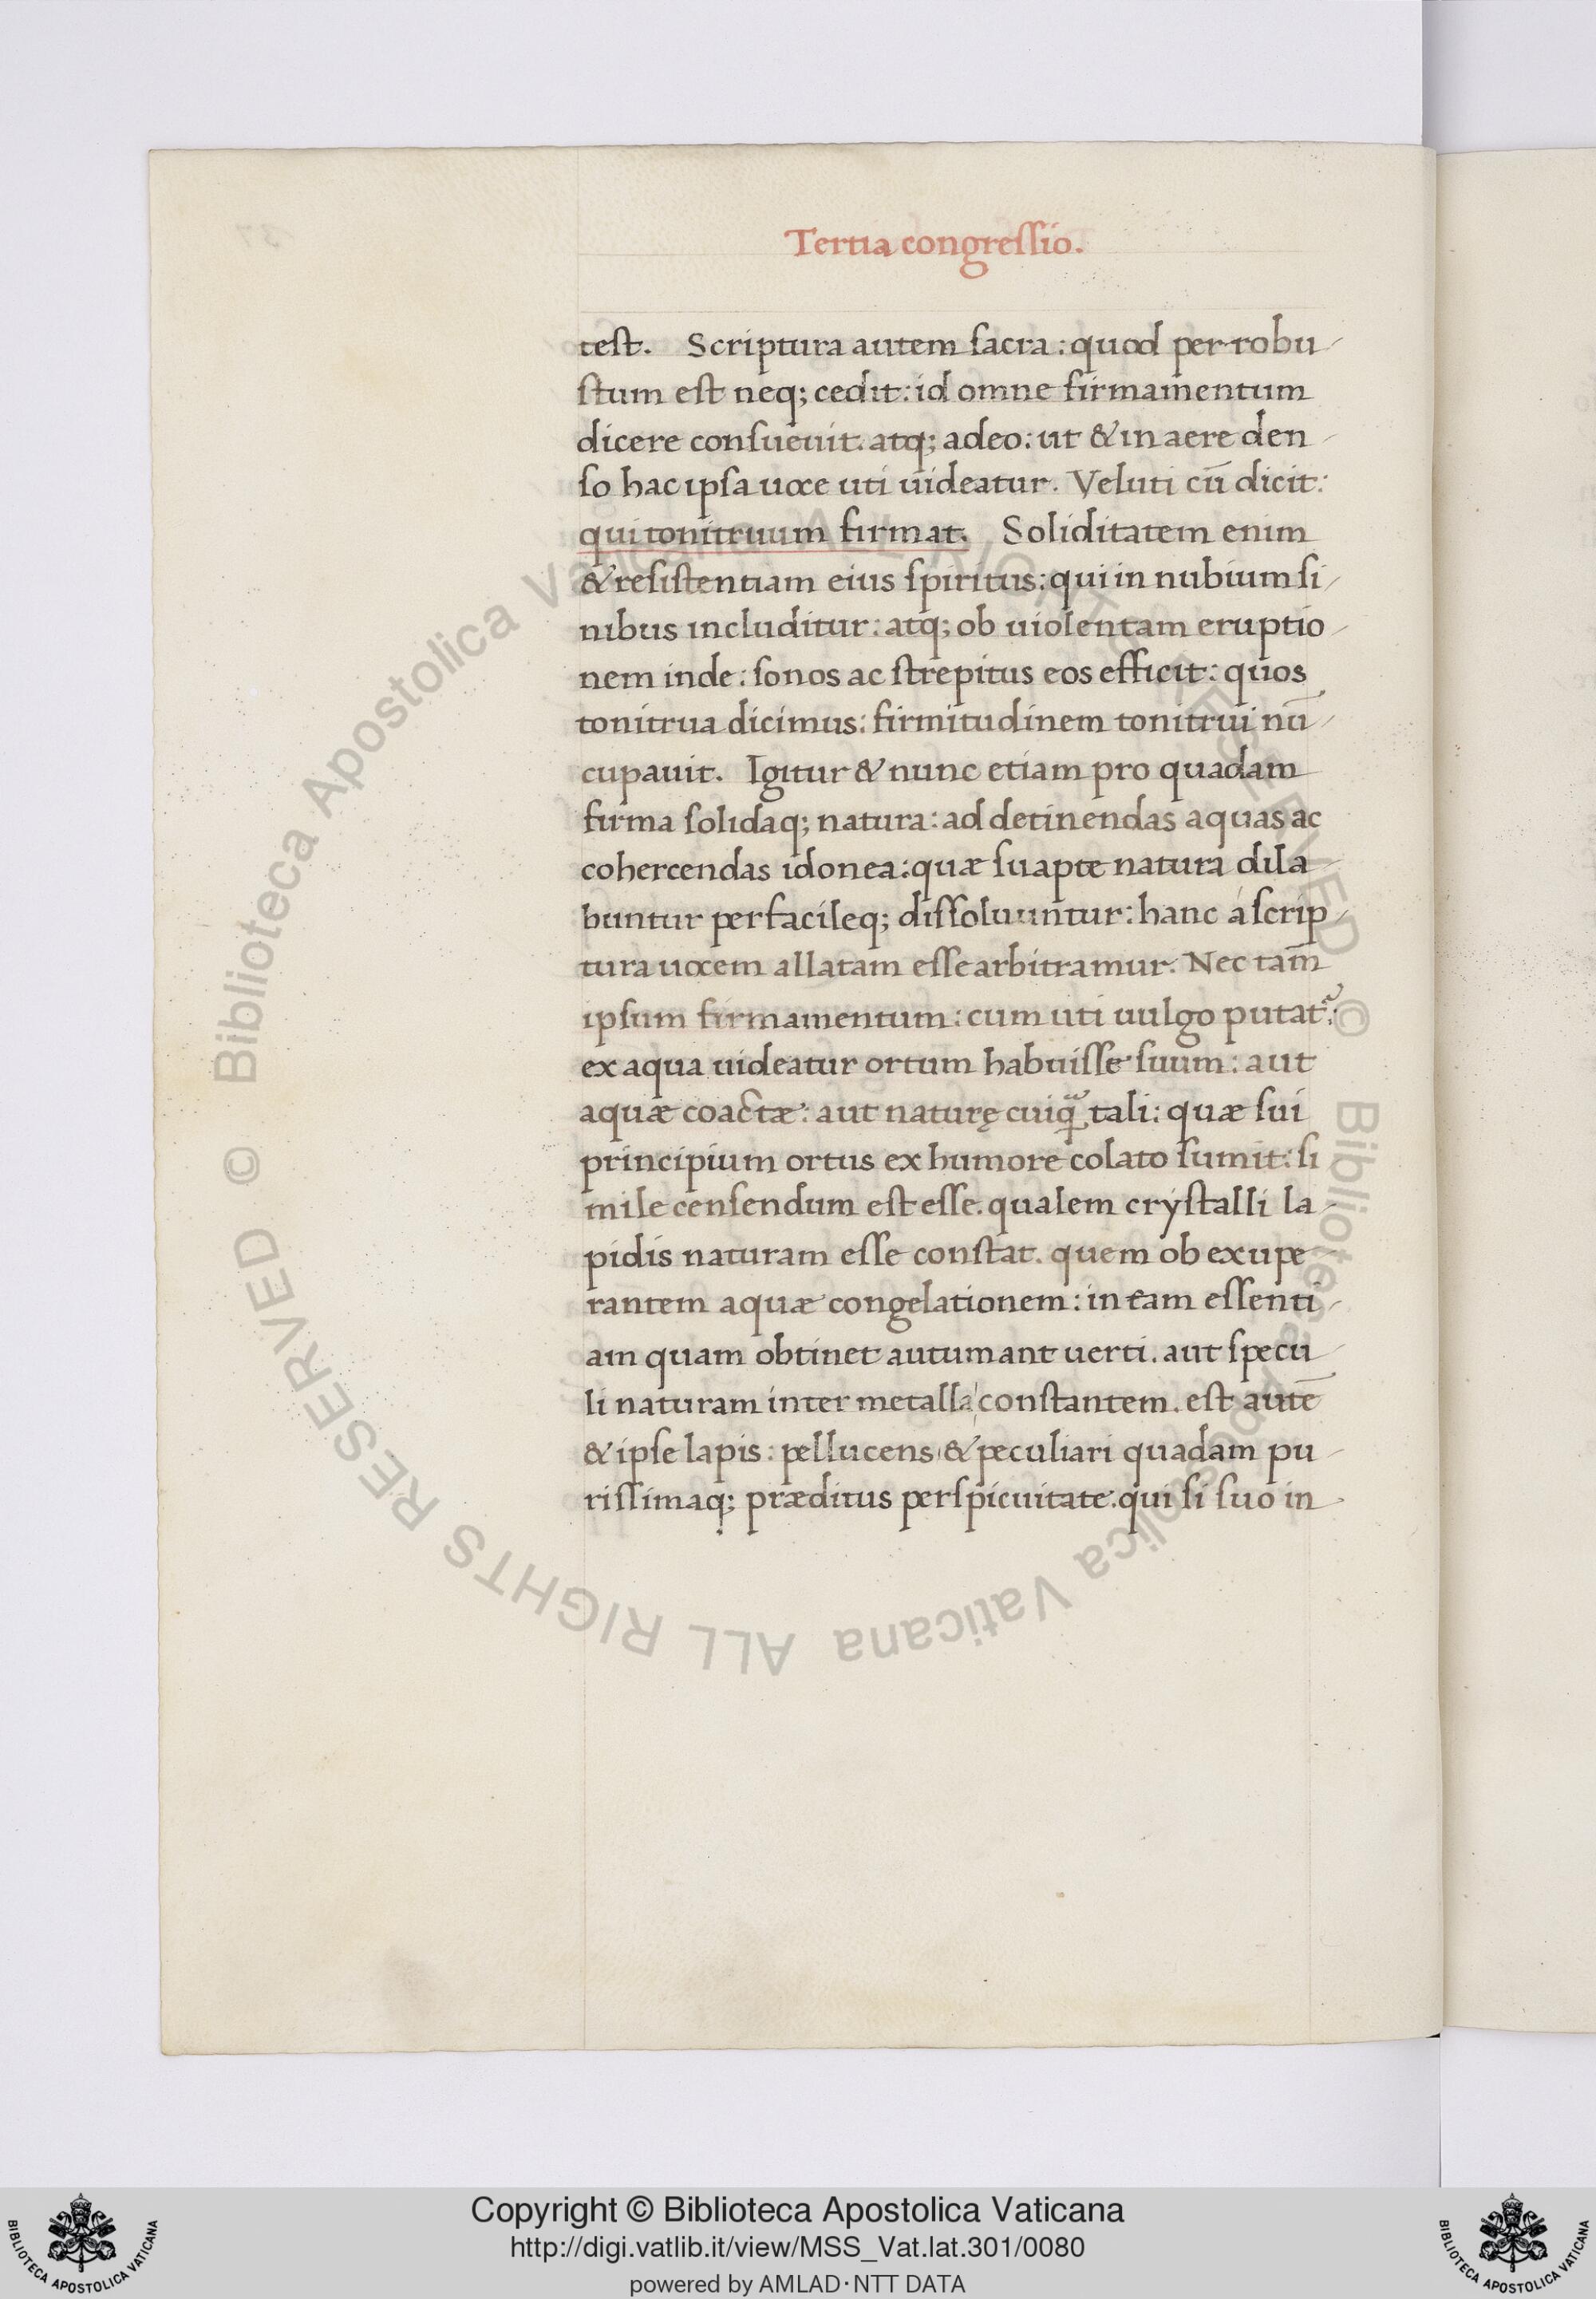 Tertia congressio.
test. Scriptura autem sacra: quod per robu
stum est neq; cedit: id omne firmamentum
dicere consueuit. atq; adeo: ut & in aere den
so hac ipsa uoce uti uideatur. Veluti cū dicit:
qui tonitruum firmat. Soliditatem enim
& resistentiam eius spiritus: qui in nubium si
nibus includitur: atq; ob uiolentam eruptio
nem inde: sonos ac strepitus eos efficit: quos
tonitrua dicimus: firmitudinem tonitrui nū
cupauit. Igitur & nunc etiam pro quadam
firma solidaq; natura: ad detinendas aquas ac
cohercendas idonea: quæ suapte natura dila
buntur perfacileq; dissoluuntur: hanc á scrip
tura uocem allatam esse arbitramur. Nec tam̄
ipsum firmamentum: cum uti uulgo putat᷑:
ex aqua uideatur ortum habuisse suum: aut
aquæ coactæ: aut naturę cuiq̃ tali: quæ sui
principium ortus ex humore colato sumit: si
mile censendum est esse. qualem crystalli la
pidis naturam esse constat. quem ob exupe
rantem aquæ congelationem: in eam essenti
am quam obtinet autumant uerti. aut specu
li naturam inter metalla constantem. est autē
& ipse lapis: pellucens & peculiari quadam pu
rissimaq; præditus perspicuitate. qui si suo in
Biblioteca Apostolica Vaticana ALL RIGHTS RESERVED ©
Biblioteca Apostolica Vaticana ALL RIGHTS RESERVED ©
Copyright © Biblioteca Apostolica Vaticana
http://digi.vatlib.it/view/MSS_Vat.lat.301/0080
powered by AMLAD·NTT DATA
BIBLIOTECA APOSTOLICA VATICANA
BIBLIOTECA APOSTOLICA VATICANA